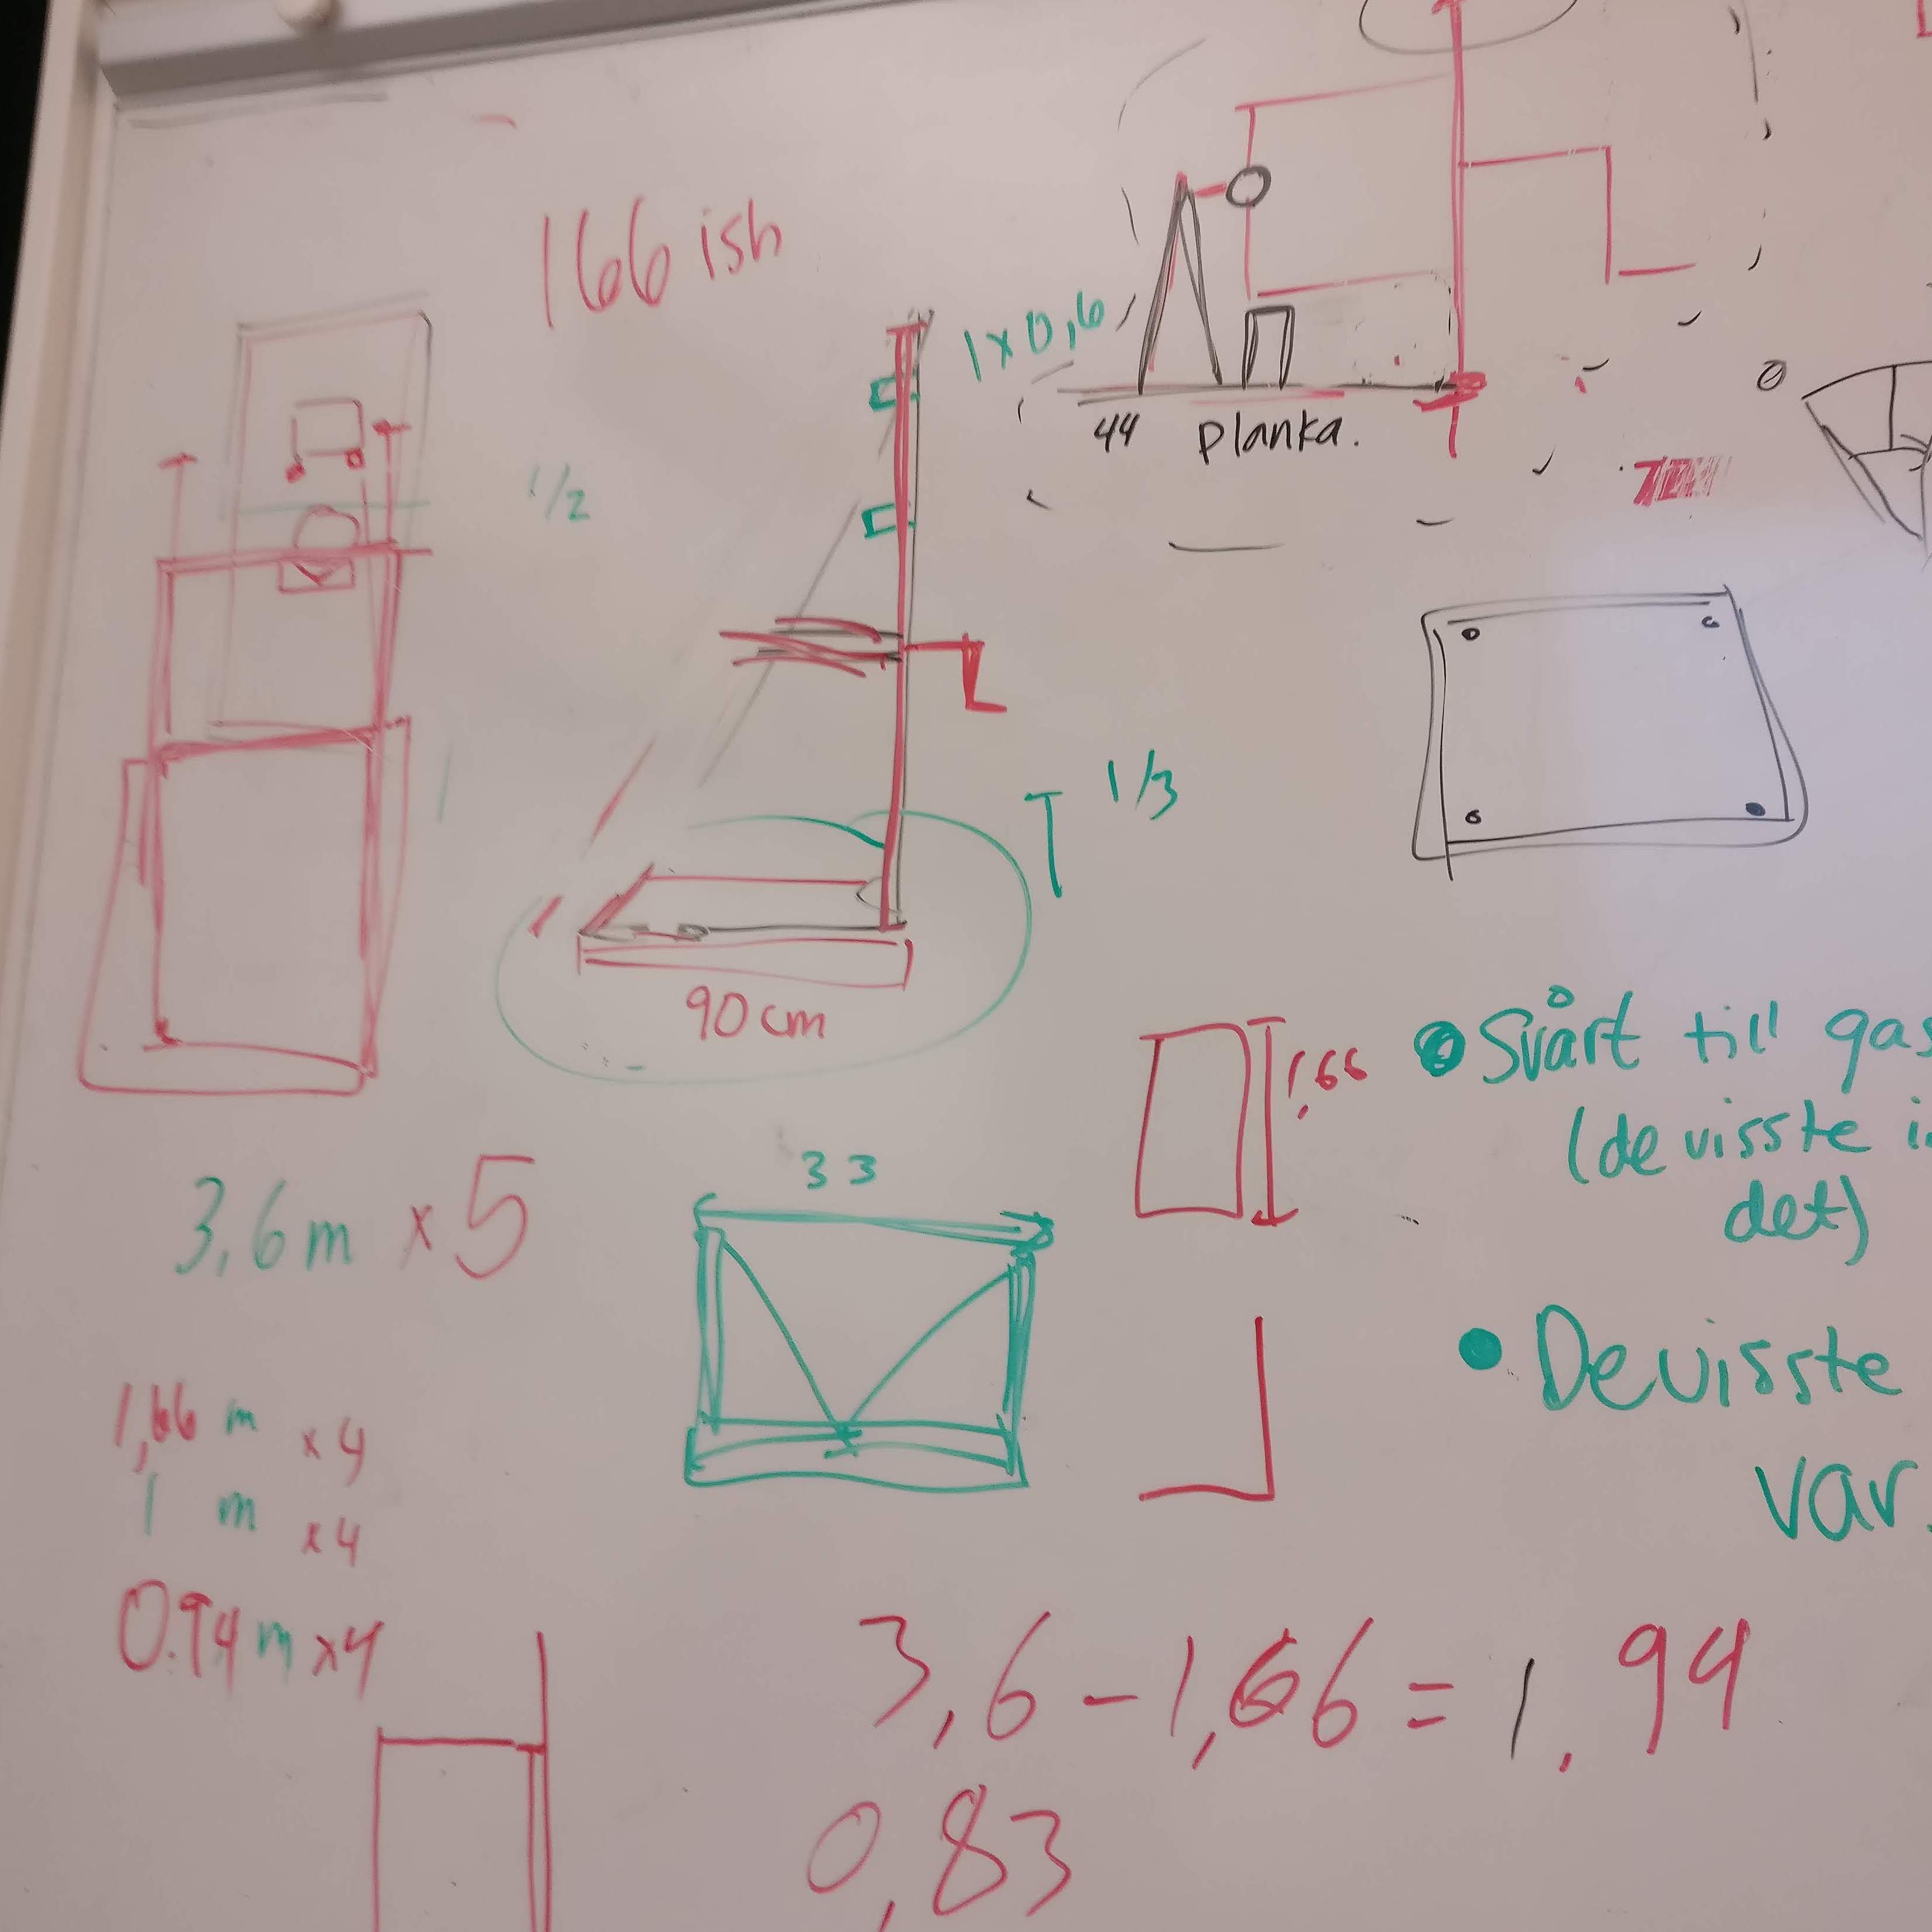 166 ish
1x0,6
44 planka.
1/2
1/3
90 cm
1,66
Svårt till
(de visste
det)
33
3,6 m x 5
De visste
var.
1,66 m x4
1 m x4
0.94 m x4
3,6 - 1,66 = 1,94
0,83